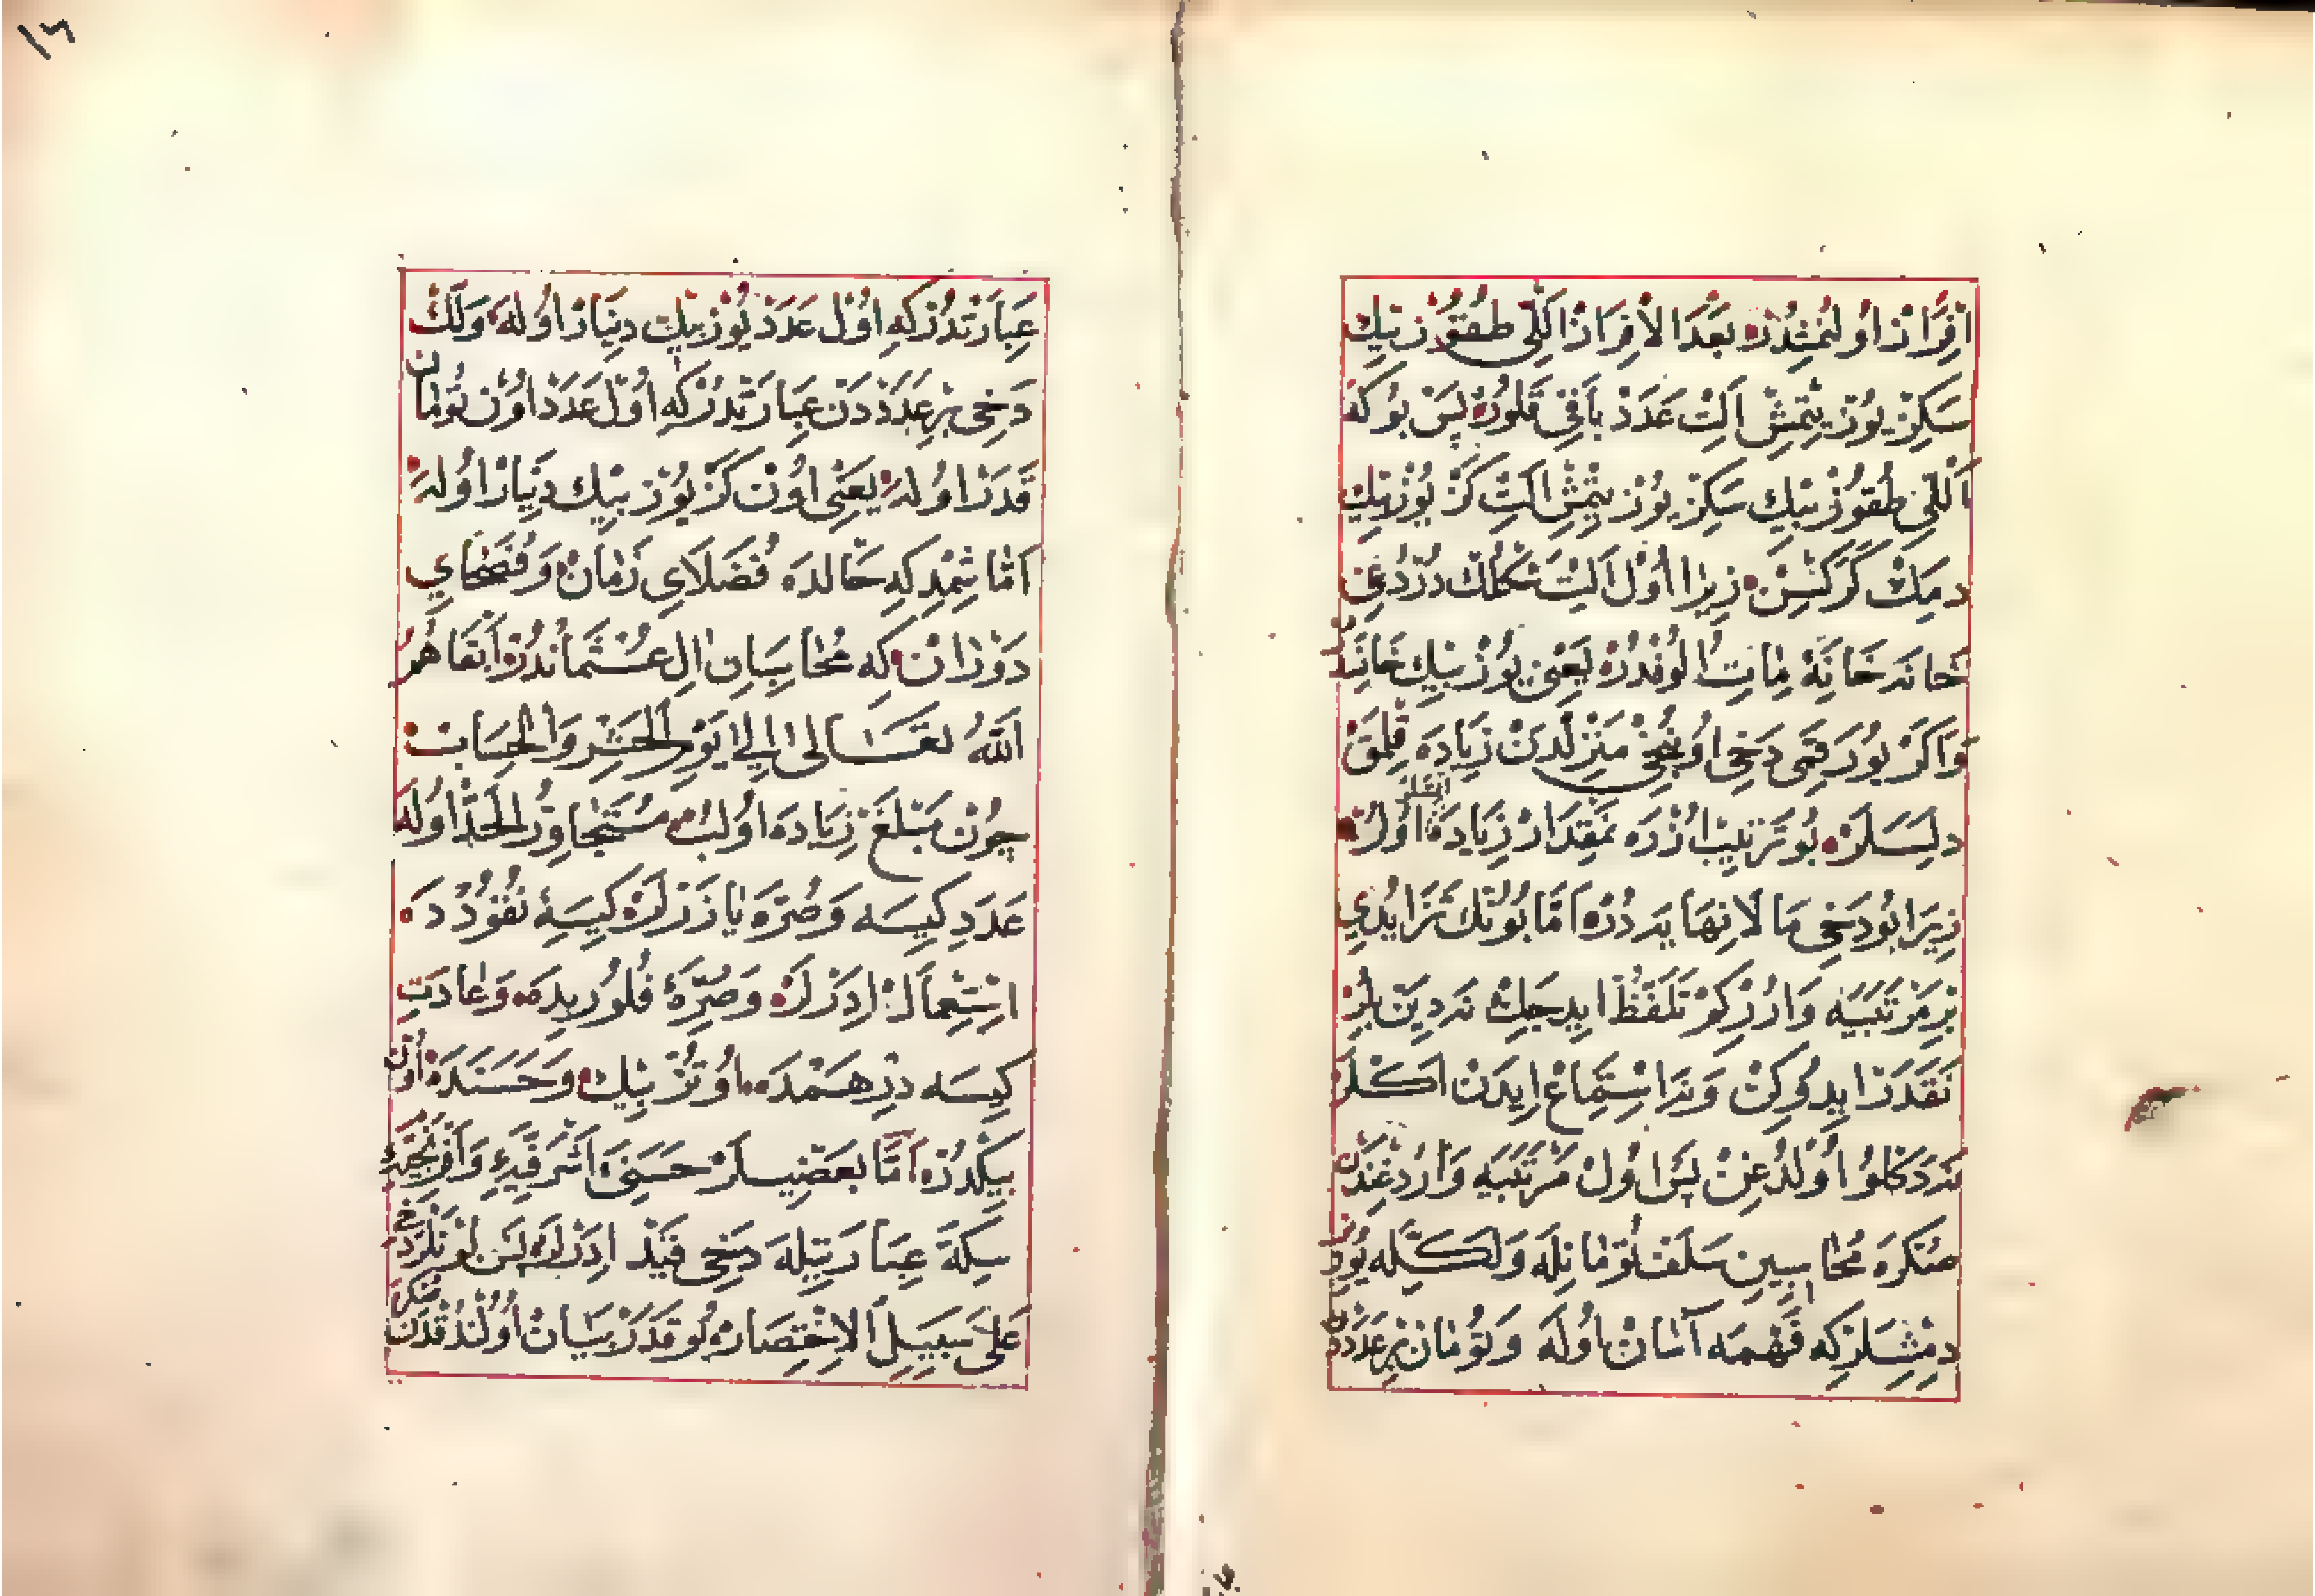 افراز اولنمشدر بعد الافراز اللى طقوز بيك
سكز يوز يتمش الت عدد باقى قلور پس بو كه
اللى طقوز بيك سكز يوز يتمش الت كز يوز بيك
دمك كركسن زيرا اول الت شكلك دردغى
خانه خانهٔ مات الوفدر يعنى يوز بيك خانه
واكر بو رقمى دخى اوننجى منزلدن زياده قلمق
دلسلر بو ترتيب اوزره بمقدار زياده اولر
زيرا بو دخى ما لا نهايه در اما بونك تزايدى
بر مرتبيه وارر كه تلفظ ايدجك نه دين بلر
نقدر ايدوكن و نه استماع ايدن اكلر
نه دكلو اولدغن پس اول مرتبيه واردغندن
صنكره محاسبين سلف تومانله ولكله يوز
دمشلر كه فهمه آسان اوله وتومان بر عدددن
١٣
عبارتدر كه اول عدد يوز بيك دينار اوله ولك
دخى بر عدددن عبارتدر كه اول عدد اون تومان
قدر اوله يعنى اون كز يوز بيك دينار اوله
اما شمديكه حالده فضلاى زمان وفصحاى
دوران كه محاسبان ال عثماندر ابقاهم
الله تعالى الى يوم الحشر والحساب
چون مبلغ زياده اولب متجاوز الحد اوله
عدد كيسه وصره يازرلر كيسهٔ نقودده
استعمال ادرلر وصرهٔ فلوريده وعادت
كيسه درهمده اوتز بيك وحسنده اون
بيكدر اما بعضيلر حسنى اشرفيۀ وافرنجيۀ
سكه عبارتيله دخى قيد ادرلر پس بونلردن
على سبيل الاختصار بو قدر بيان اولندقدن صكره